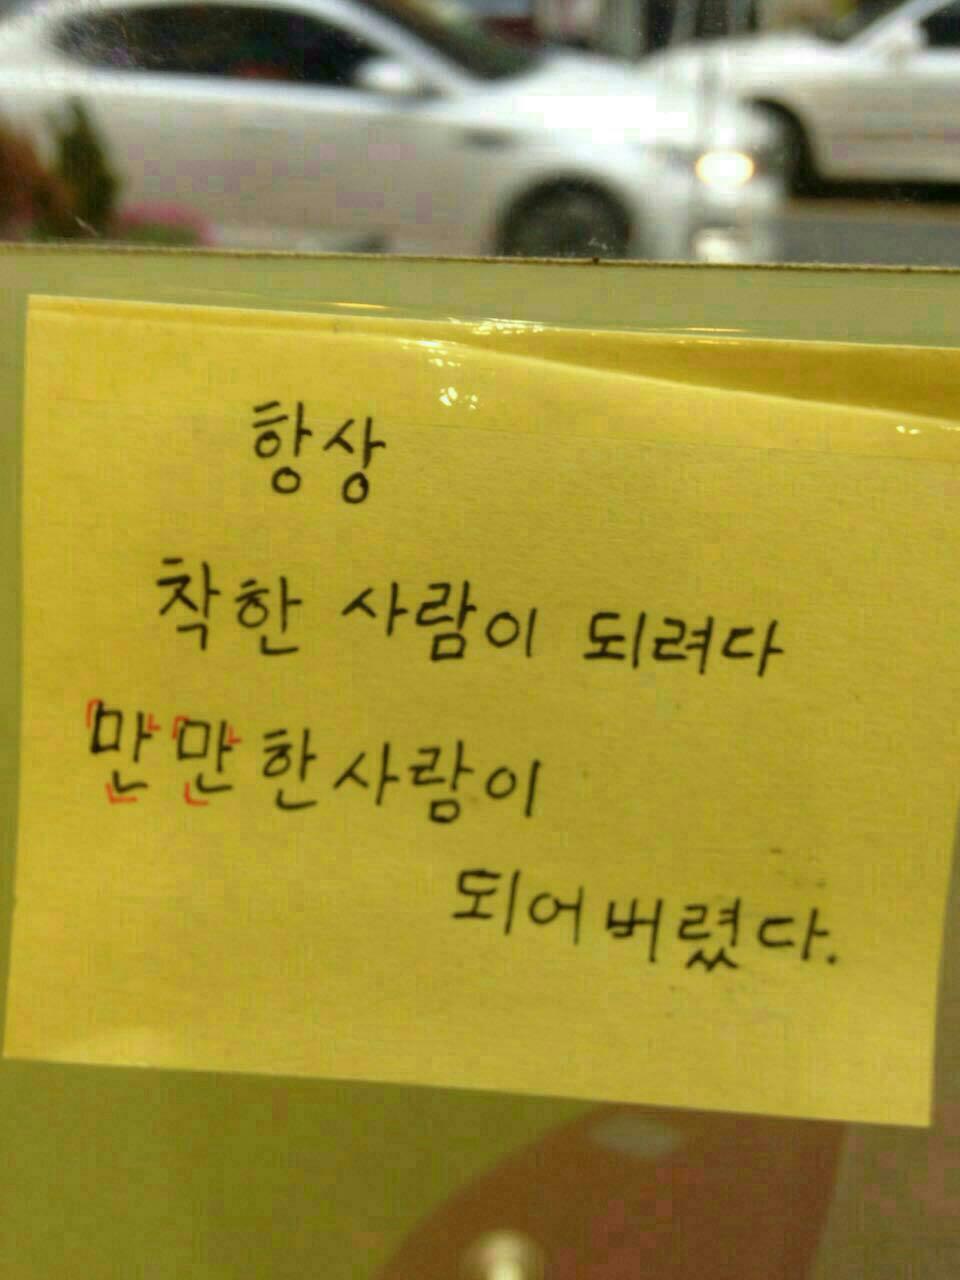 항상
착한 사람이 되려다
만만한사람이
되어버렸다.